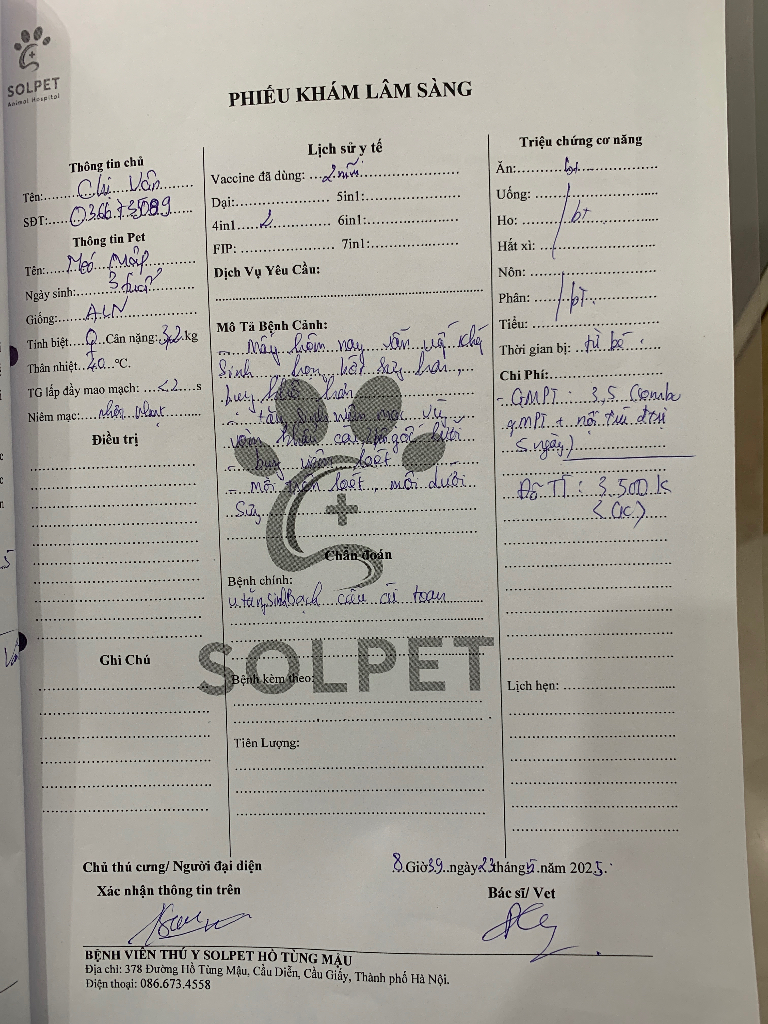 SOLPET
Animal Hospital
PHIẾU KHÁM LÂM SÀNG
Thông tin chủ
Tên: Chị Vân
SĐT:
Thông tin Pet
Tên: Mập
Ngày sinh: 3 tuổi
Giống: ALN
Tính biệt ♀ Cân nặng: 3,2 kg
Thân nhiệt 40 °C.
TG lấp đầy mao mạch: <2 s
Niêm mạc: nhợt
Điều trị
Ghi Chú
Lịch sử y tế
Vaccine đã dùng: 2 mũi
Dại: 5in1:
4in1 2 6in1:
FIP: 7in1:
Dịch Vụ Yêu Cầu:
Mô Tả Bệnh Cảnh:
- Mấy hôm nay vẫn
hơn,
- tăng sinh niêm mạc
vòm khẩu cái, gốc lưỡi
loét
- môi trên loét, môi dưới
sưng
Chẩn đoán
Bệnh chính:
u tăng sinh Bạch cầu ái toan
SOLPET
Bệnh kèm theo:
Tiên Lượng:
Triệu chứng cơ năng
Ăn: bt
Uống:
Ho: bt
Hắt xì:
Nôn:
Phân: bt
Tiểu:
Thời gian bị: từ bé
Chi Phí:
- GMPT: 3,5 (Combo
GMPT + nội trú đtrị
5 ngày)
Đã TT: 3.500k
(ck)
Lịch hẹn:
Chủ thú cưng/ Người đại diện
Xác nhận thông tin trên
8 Giờ 39 ngày 23 tháng 5 năm 2025.
Bác sĩ/ Vet
BỆNH VIỆN THÚ Y SOLPET HỒ TÙNG MẬU
Địa chỉ: 378 Đường Hồ Tùng Mậu, Cầu Diễn, Cầu Giấy, Thành phố Hà Nội.
Điện thoại: 086.673.4558